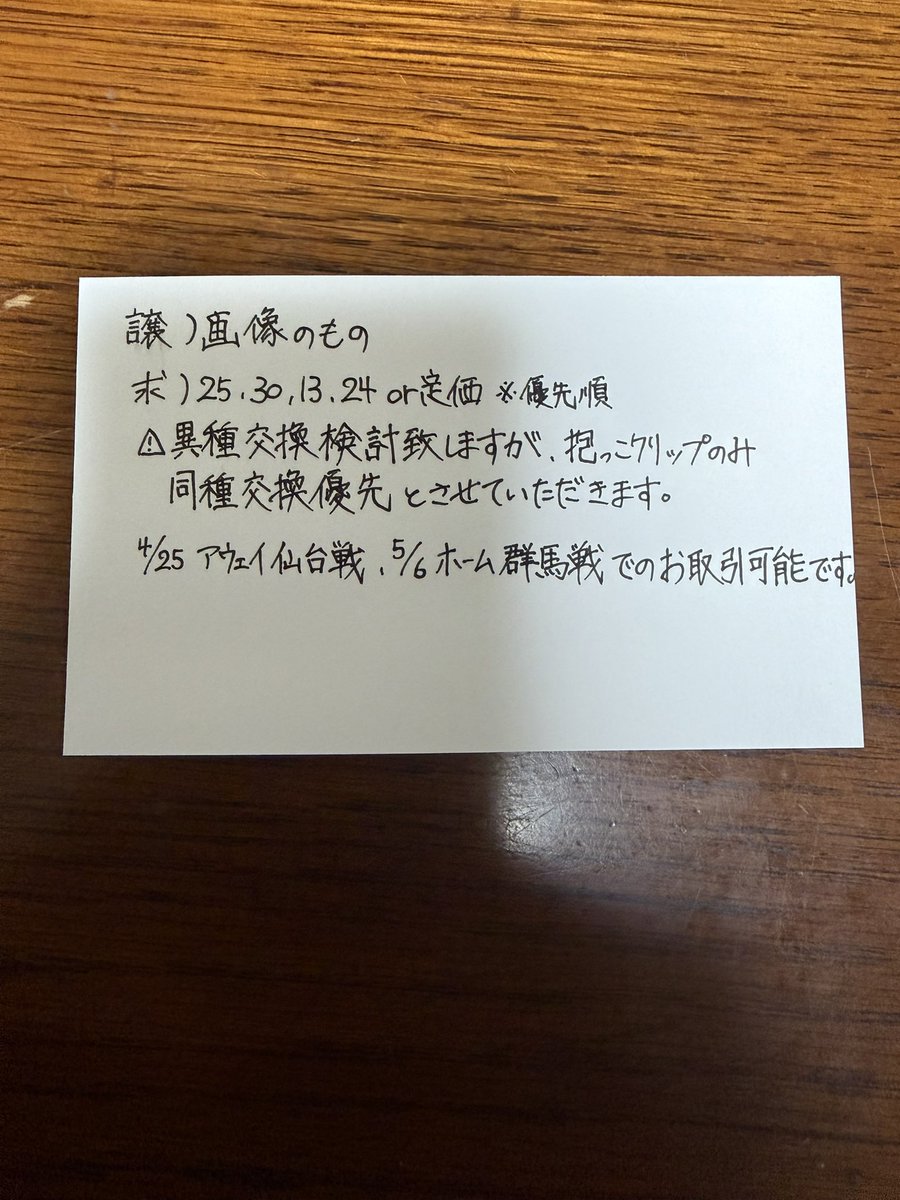 譲)画像のもの
求)25.30,13.24 or定価 ※優先順
⚠異種交換検討致しますが、抱っこクリップのみ
同種交換優先とさせていただきます。
4/25 アウェイ仙台戦、5/6 ホーム群馬戦でのお取引可能です。